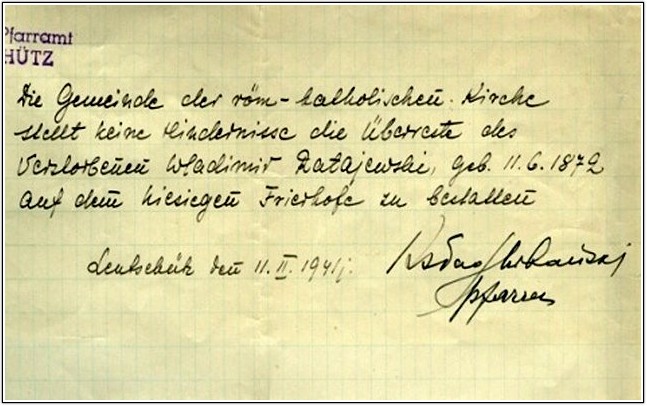 Pfarramt
HÜTZ
Die Gemeinde der röm-katholischen Kirche
stellt keine Hindernisse die Überreste des
Verstorbenen Wladimir Ratajewski, geb. 11.6.1872
auf dem hiesigen Friedhofe zu bestatten
Lentschütz den 11.II.1941 j.
Pfarrer